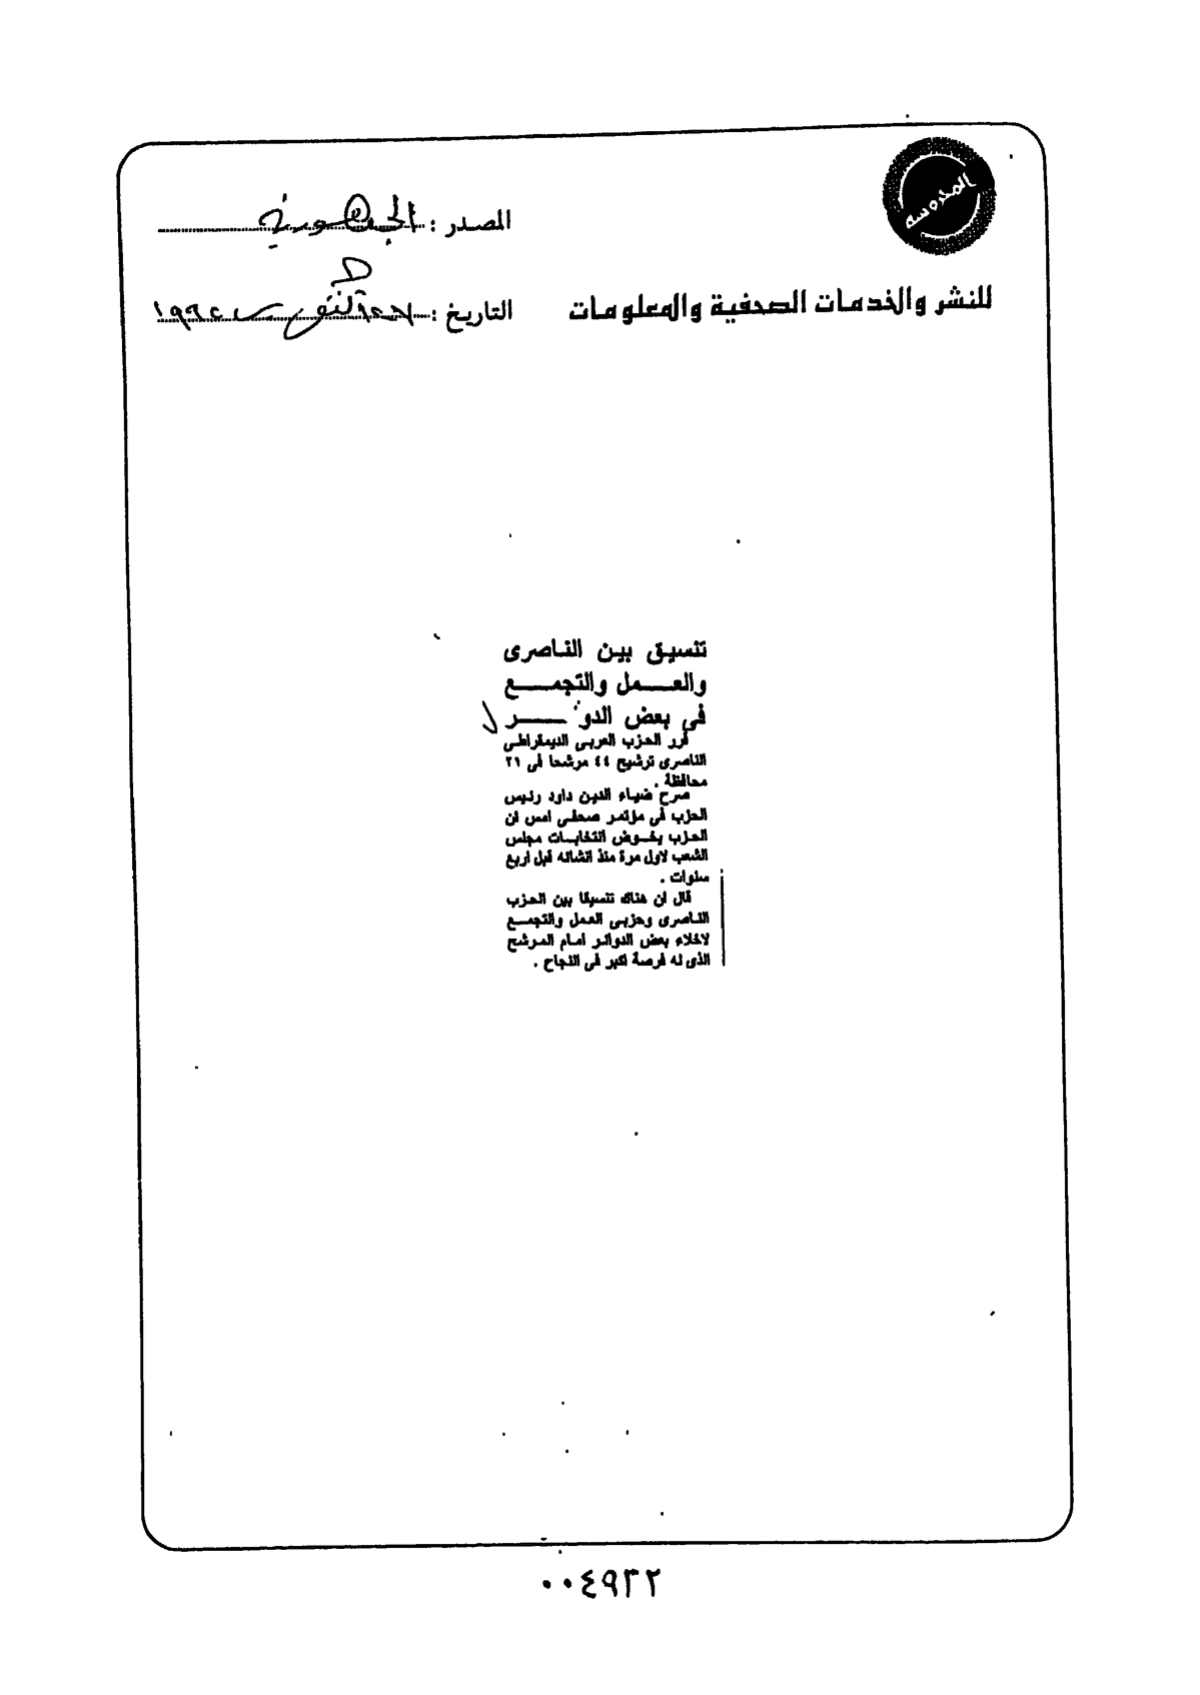 المحروسة
المصدر : الجمهورية
للنشر والخدمات الصحفية والمعلومات
التاريخ :
تنسيق بين الناصرى
والعـــمل والتجمـــع
فى بعض الدو ـــر
قرر الحزب العربى الديمقراطى
الناصرى ترشيح ٤٤ مرشحا فى ٢١
محافظة .
صرح ضياء الدين داود رئيس
الحزب فى مؤتمر صحفى امس ان
الحزب يخوض انتخابات مجلس
الشعب لاول مرة منذ انشائه قبل اربع
سنوات .
قال ان هناك تنسيقا بين الحزب
الناصرى وحزبى العمل والتجمع
لاخلاء بعض الدوائر امام المرشح
الذى له فرصة اكبر فى النجاح .
٠٠٤٩٣٢